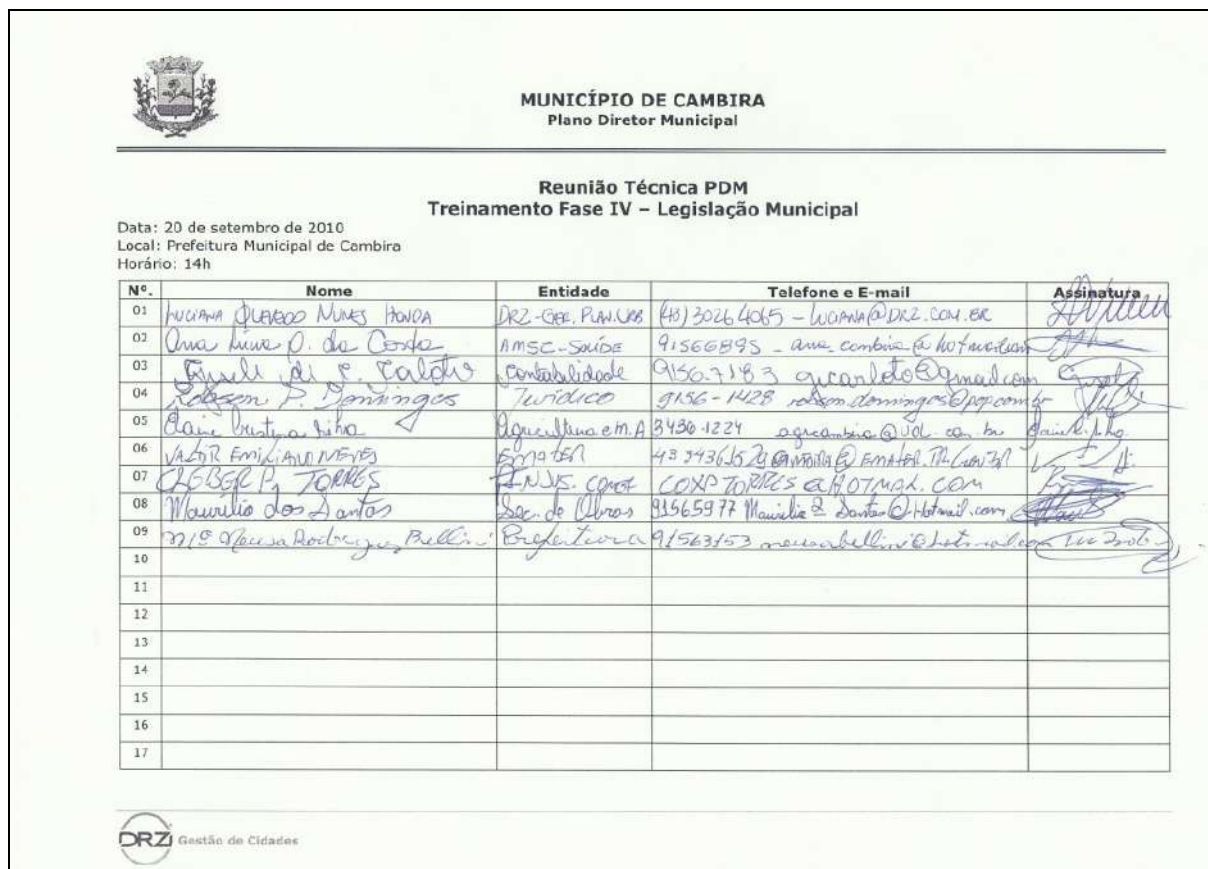 MUNICÍPIO DE CAMBIRA
Plano Diretor Municipal
Reunião Técnica PDM
Treinamento Fase IV – Legislação Municipal
Data: 20 de setembro de 2010
Local: Prefeitura Municipal de Cambira
Horário: 14h
Nº. Nome Entidade Telefone e E-mail Assinatura
01 LUCIANA QUEVEDO NUNES HONDA DRZ-GER. PLAN.URB (43) 3026 4065 - LUCIANA@DRZ.COM.BR
02 Ana Lúcia O. da Costa AMSC-Saúde 91566895 - ana_cambira@hotmail.com
03 Contabilidade 9156-7183 gicarloto@gmail.com
04 Robson P. Domingos Jurídico 9156-1428 robson.domingos@pop.com.br
05 Elaine Cristina Silva Agricultura e M.A 3436-1224 agrcambira@uol.com.br
06 VALDIR EMILIANO NEVES EMATER
07 CLEBER P. TORRES COXPTORRES@HOTMAIL.COM
08 Maurilio dos Santos Sec. de Obras 91565977
09 Mª Neusa Rodrigues Bellini Prefeitura 91563153 neusabellini@hotmail.com
10
11
12
13
14
15
16
17
DRZ Gestão de Cidades